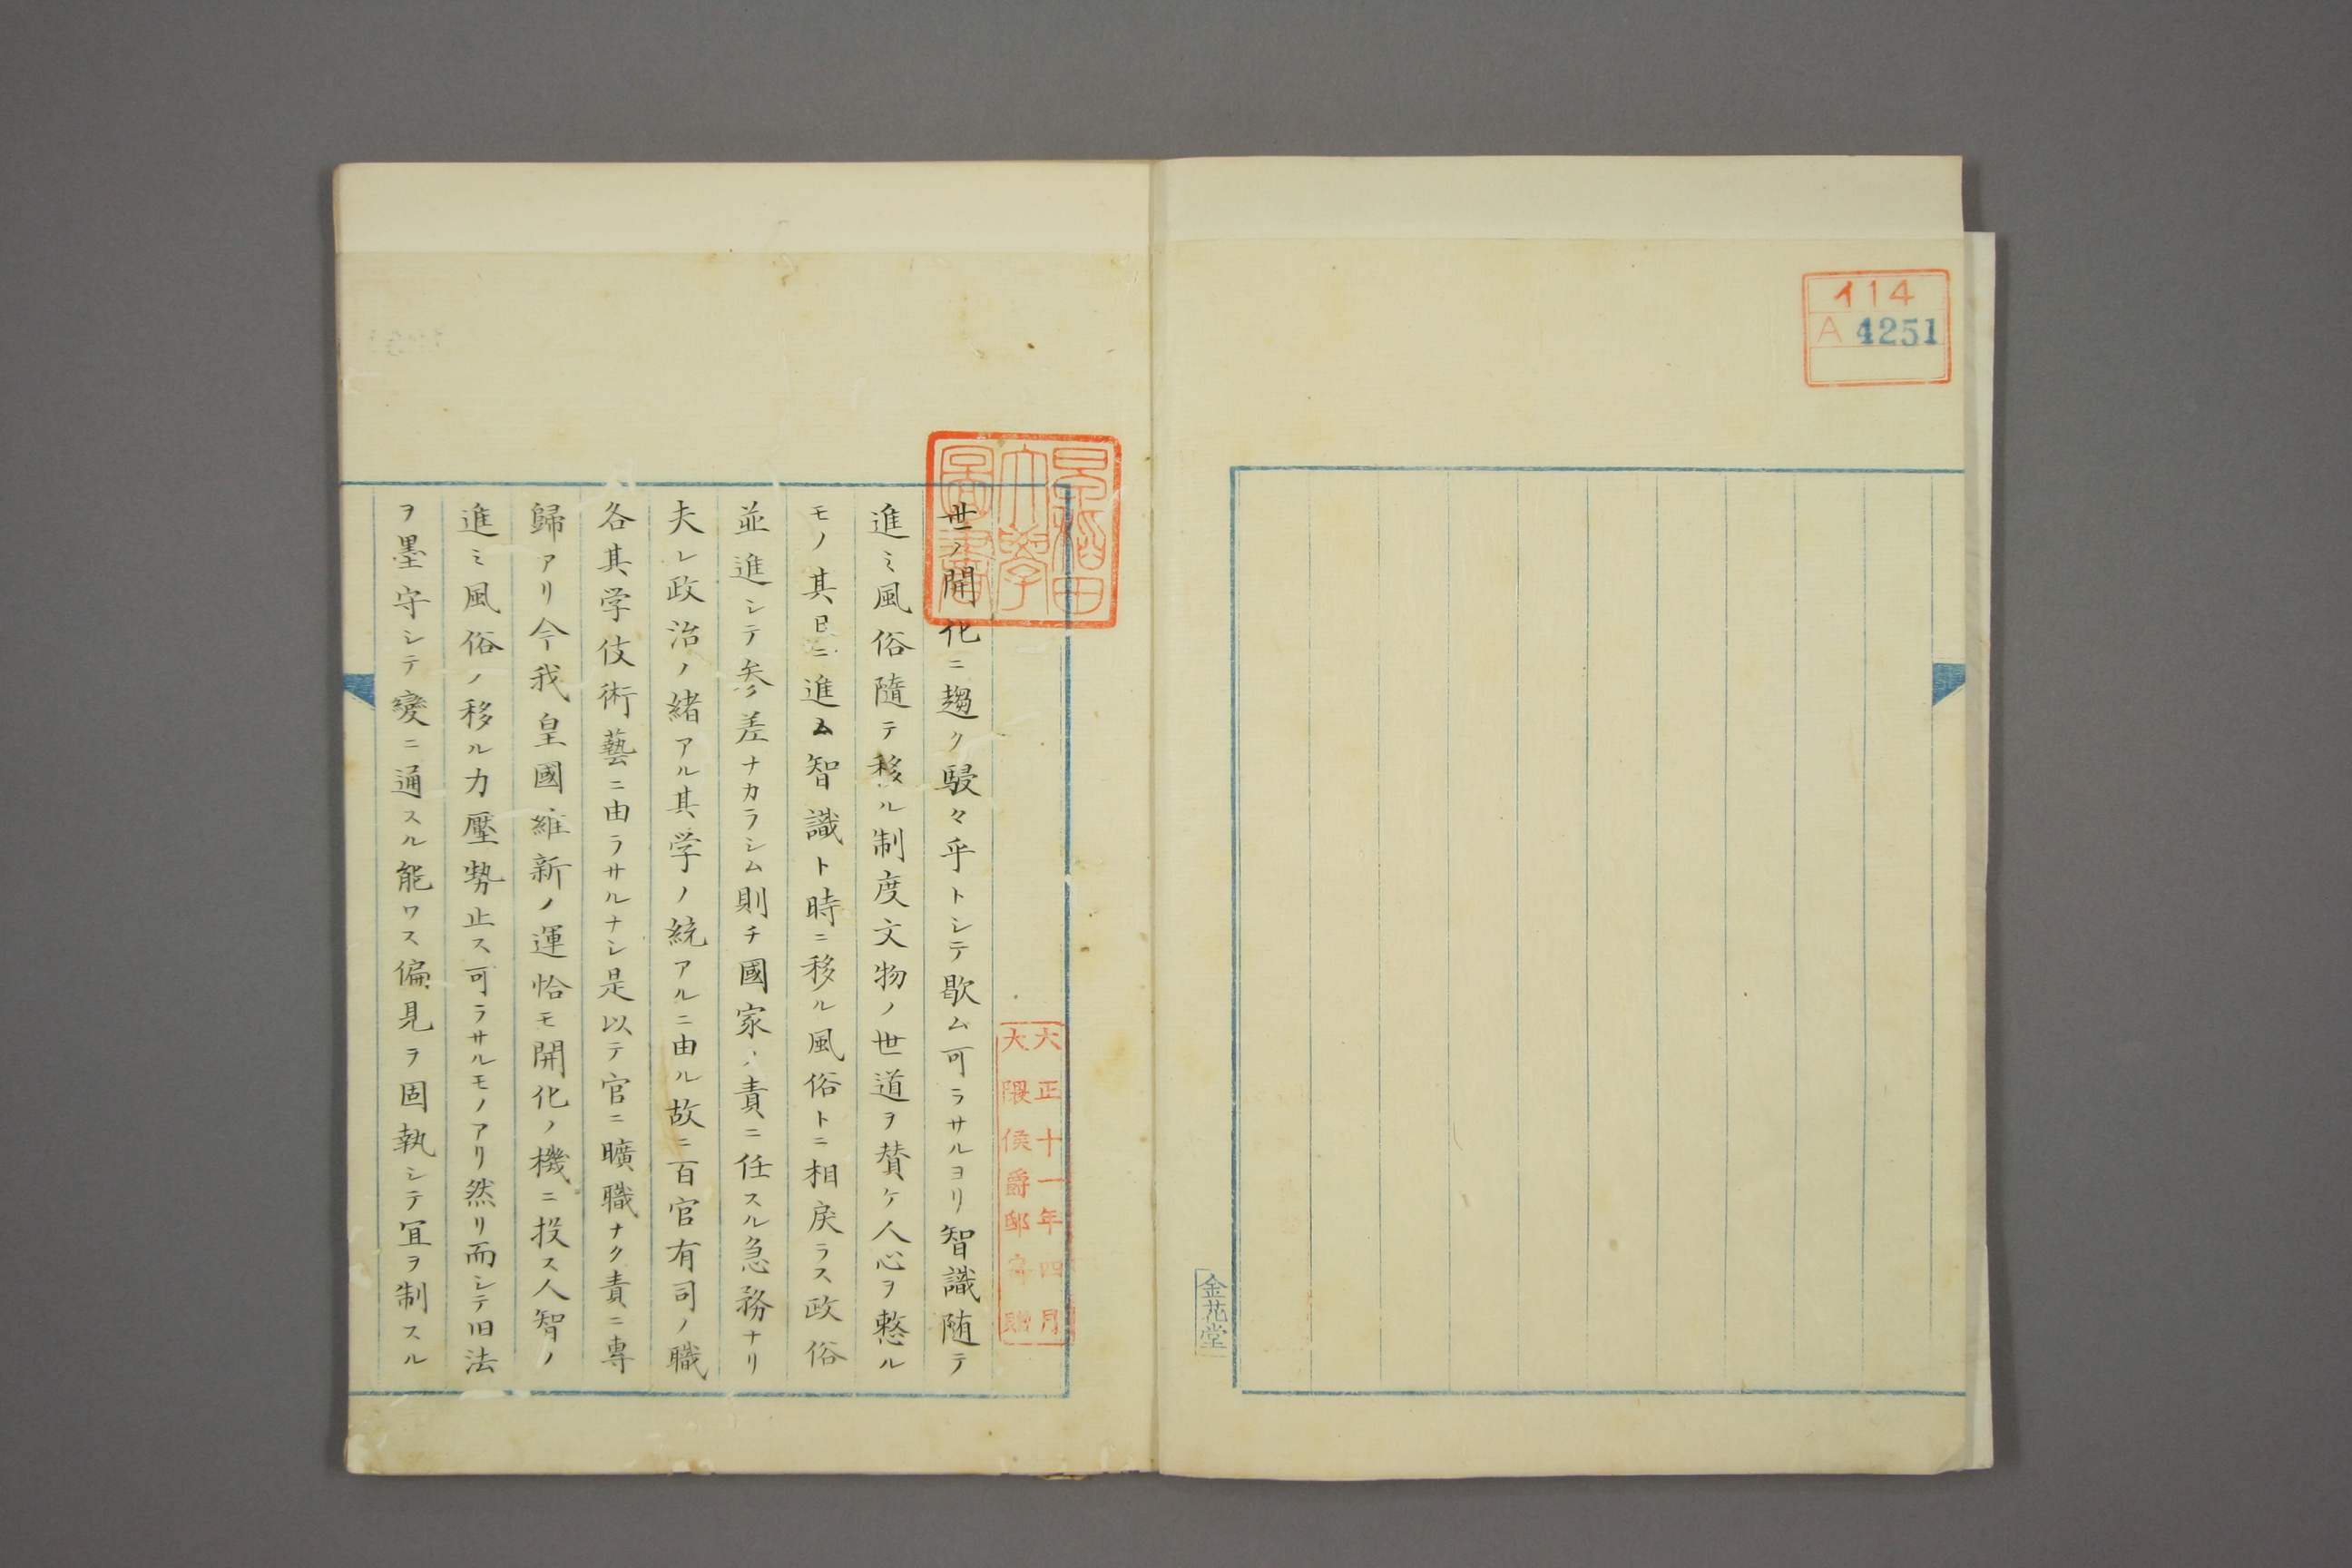 イ14
A 4251
金花堂
早稲田
大學
圖書
大正十一年四月
大隈侯爵邸寄贈
世ノ開化ニ趨ク駸々乎トシテ歇ム可ラサルヨリ智識随テ
進ミ風俗隨テ移ル制度文物ノ世道ヲ賛ケ人心ヲ整ル
モノ其已ニ進ム智識ト時ニ移ル風俗トニ相戻ラス政俗
並進シテ参差ナカラシム則チ國家ノ責ニ任スル急務ナリ
夫レ政治ノ緒アル其学ノ統アルニ由ル故ニ百官有司ノ職
各其学伎術藝ニ由ラサルナシ是以テ官ニ曠職ナク責ニ専
歸アリ今我皇國維新ノ運恰モ開化ノ機ニ投ス人智ノ
進ミ風俗ノ移ル力壓勢止ス可ラサルモノアリ然リ而シテ旧法
ヲ墨守シテ變ニ通スル能ワス偏見ヲ固執シテ宜ヲ制スル